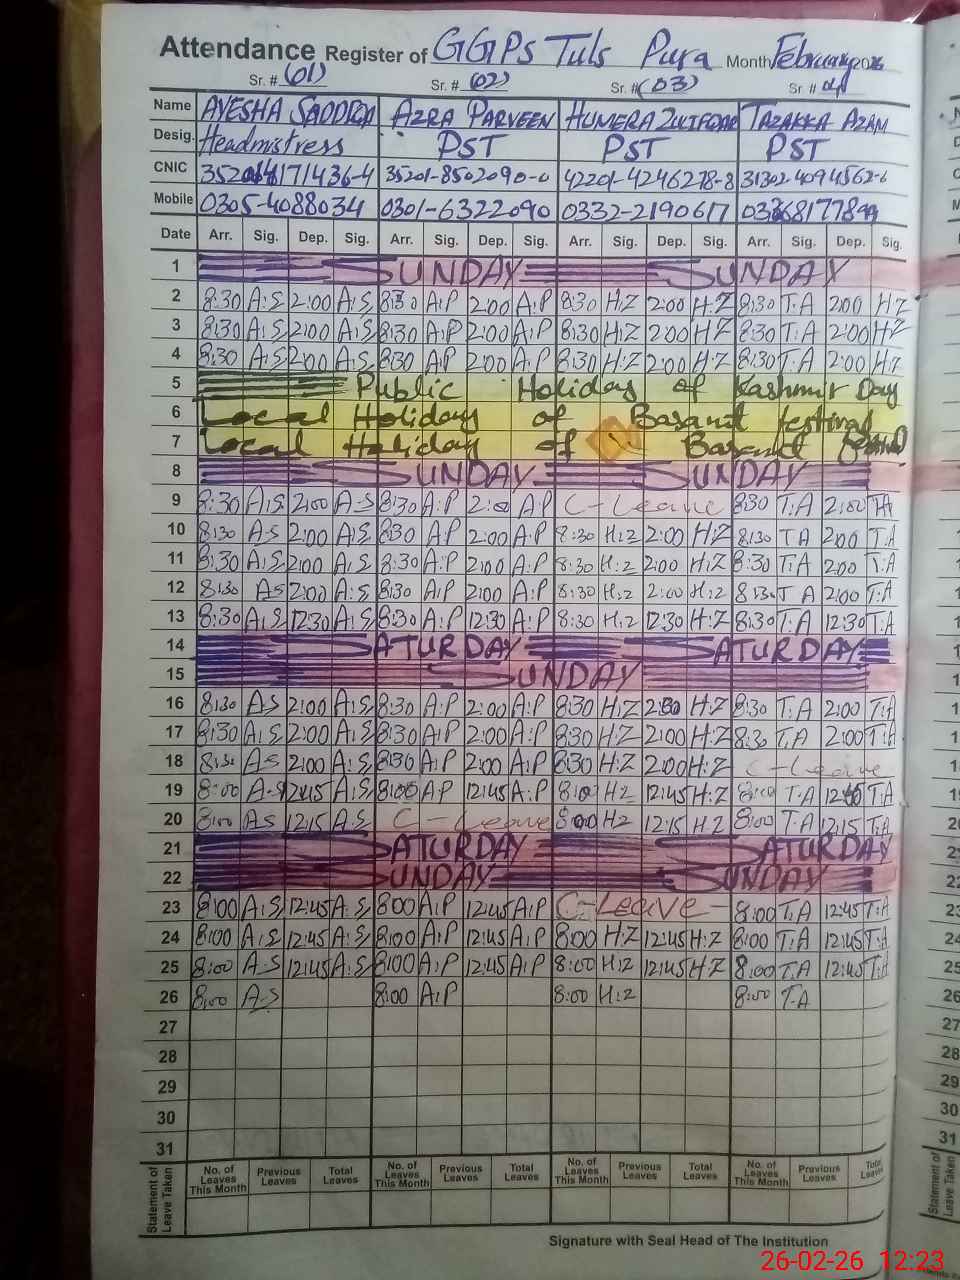 Attendance Register of GGPS Tuls Pura Month February 2026
Sr. # (01) Sr. # (02) Sr. # (03) Sr. # 04
Name AYESHA SADDIQA AZRA PARVEEN HUMERA ZULFQAR TAZAKKA AZAM
Desig. Headmistress PST PST PST
CNIC 35201-8502090-0 42201-4246278-8 31302-4094562-6
Mobile 0305-4088034 0301-6322090 0332-2190617
Date Arr. Sig. Dep. Sig. Arr. Sig. Dep. Sig. Arr. Sig. Dep. Sig. Arr. Sig. Dep. Sig.
1 SUNDAY SUNDAY
2 8:30 A:S 2:00 A:S 8:30 A:P 2:00 A:P 8:30 H:Z 2:00 H:Z 8:30 T:A 2:00 H:Z
3 8:30 A:S 2:00 A:S 8:30 A:P 2:00 A:P 8:30 H:Z 2:00 H:Z 8:30 T:A 2:00 H:Z
4 8:30 A:S 2:00 A:S 8:30 A:P 2:00 A:P 8:30 H:Z 2:00 H:Z 8:30 T:A 2:00 H:Z
5 Public Holiday of Kashmir Day
6 Local Holiday of Basant festival
7 Local Holiday of Basant festival
8 SUNDAY SUNDAY
9 8:30 A:S 2:00 A:S 8:30 A:P 2:00 A:P C-Leave 8:30 T:A 2:00 T:A
10 8:30 A:S 2:00 A:S 8:30 A:P 2:00 A:P 8:30 H:Z 2:00 H:Z 8:30 T:A 2:00 T:A
11 8:30 A:S 2:00 A:S 8:30 A:P 2:00 A:P 8:30 H:Z 2:00 H:Z 8:30 T:A 2:00 T:A
12 8:30 A:S 2:00 A:S 8:30 A:P 2:00 A:P 8:30 H:Z 2:00 H:Z 8:30 T:A 2:00 T:A
13 8:30 A:S 12:30 A:S 8:30 A:P 12:30 A:P 8:30 H:Z 12:30 H:Z 8:30 T:A 12:30 T:A
14 SATURDAY SATURDAY
15 SUNDAY
16 8:30 A:S 2:00 A:S 8:30 A:P 2:00 A:P 8:30 H:Z 2:00 H:Z 8:30 T:A 2:00 T:A
17 8:30 A:S 2:00 A:S 8:30 A:P 2:00 A:P 8:30 H:Z 2:00 H:Z 8:30 T:A 2:00 T:A
18 8:30 A:S 2:00 A:S 8:30 A:P 2:00 A:P 8:30 H:Z 2:00 H:Z C-Leave
19 8:00 A:S 12:45 A:S 8:00 A:P 12:45 A:P 8:00 H:Z 12:45 H:Z 8:00 T:A 12:45 T:A
20 8:00 A:S 12:15 A:S C-Leave 8:00 H:Z 12:15 H:Z 8:00 T:A 12:15 T:A
21 SATURDAY SATURDAY
22 SUNDAY SUNDAY
23 8:00 A:S 12:45 A:S 8:00 A:P 12:45 A:P C-LEAVE- 8:00 T:A 12:45 T:A
24 8:00 A:S 12:45 A:S 8:00 A:P 12:45 A:P 8:00 H:Z 12:45 H:Z 8:00 T:A 12:45 T:A
25 8:00 A:S 12:45 A:S 8:00 A:P 12:45 A:P 8:00 H:Z 12:45 H:Z 8:00 T:A 12:45 T:A
26 8:00 A:S 8:00 A:P 8:00 H:Z 8:00 T:A
27
28
29
30
31
Statement of Leave Taken No. of Leaves This Month Previous Leaves Total Leaves No. of Leaves This Month Previous Leaves Total Leaves No. of Leaves This Month Previous Leaves Total Leaves No. of Leaves This Month Previous Leaves Total Leaves
Signature with Seal Head of The Institution
26-02-26 12:23